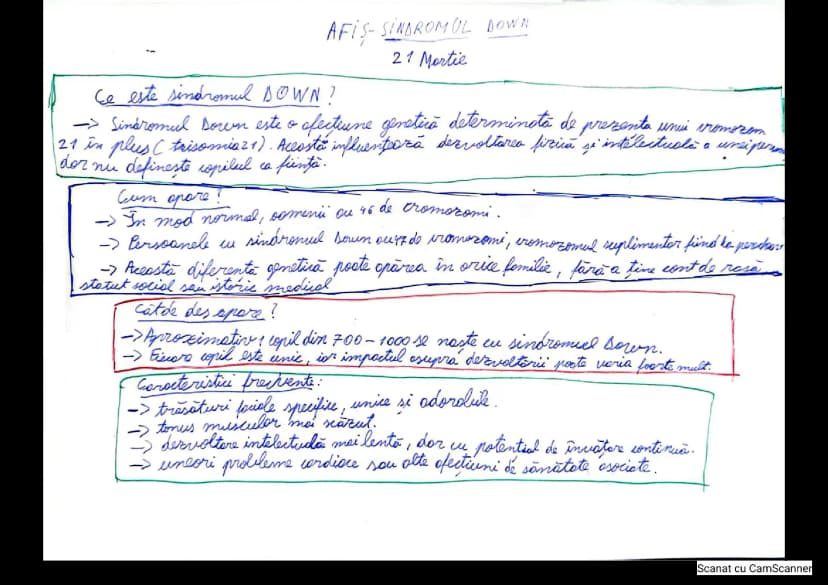 AFIȘ- SINDROMUL DOWN
21 Martie
Ce este sindromul DOWN?
-> Sindromul Down este o afecțiune genetică determinată de prezența unui cromozom
21 în plus (trisomia 21). Această influențează dezvoltarea fizică și intelectuală a unei
dar nu definește copilul ca ființă.
Cum apare?
-> În mod normal, oamenii au 46 de cromozomi.
-> Persoanele cu sindromul Down au 47 de cromozomi, cromozomul suplimentar fiind la
-> Această diferență genetică poate apărea în orice familie, fără a ține cont de rasă
statut social sau istoric medical
Cât de des apare?
-> Aproximativ 1 copil din 700 - 1000 se naște cu sindromul Down.
-> Fiecare copil este unic, iar impactul asupra dezvoltării poate varia foarte mult.
Caracteristici frecvente:
-> trăsături faciale specifice, unice și adorabile.
-> tonus muscular mai scăzut.
-> dezvoltare intelectuală mai lentă, dar cu potențial de învățare continuă.
-> uneori probleme cardiace sau alte afecțiuni de sănătate asociate.
Scanat cu CamScanner